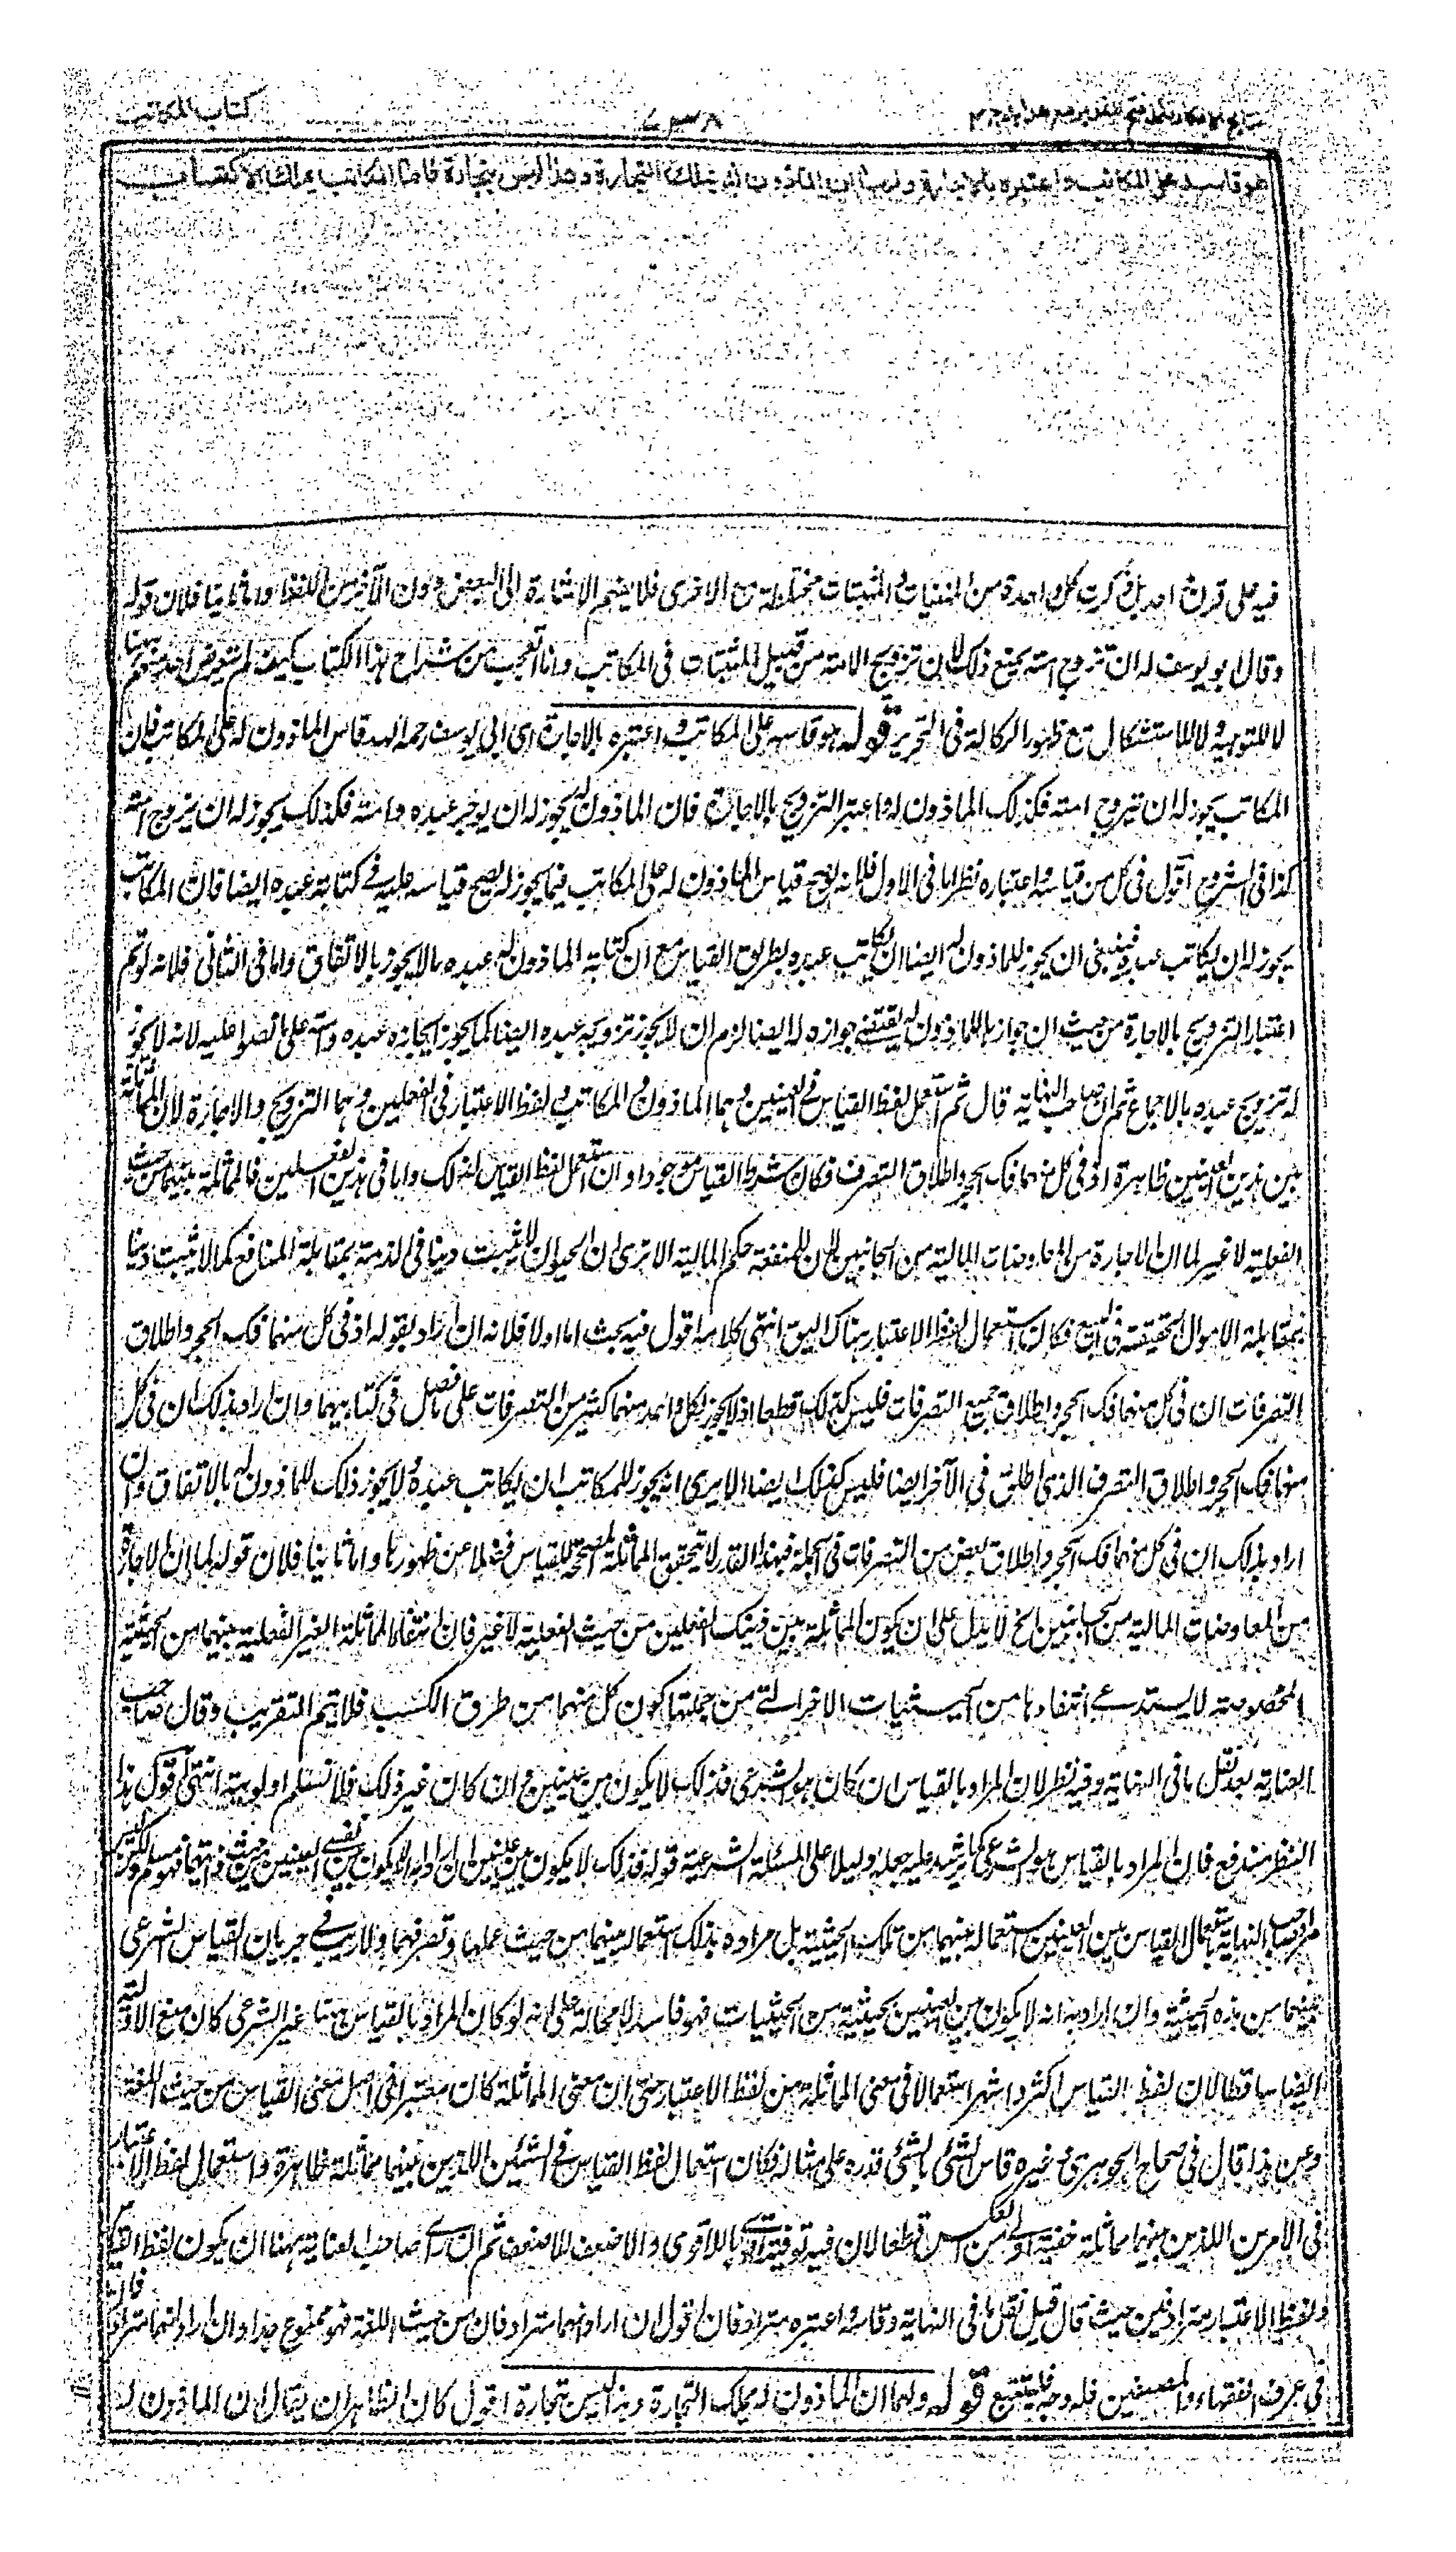 كتاب المكاتب
هو قاسه على المكاتب واعتبره بالاجارة ولهما ان الماذون له يملك التجارة وهذا ليس بتجارة فاما المكاتب يملك الاكتساب
فيه على قرن احد بل ذكرت كل واحدة من المنفيات والمثبتات مختلطة مع الاخرى فلا يفهم الاشارة الى البعض دون الآخر من اللفظ واما ثانيا فلان قوله
وقال ابو يوسف له ان تزوج امته يمنع ذلك لان تزويج الامة من قبيل المثبتات فى المكاتب وانا اتعجب من شراح هذا الكتاب كيف لم يتعرض احد منهم ههنا
لا للتوجيه ولا للاستشكال مع ظهور الركاكة فى التحرير قوله هو قاسه على المكاتب واعتبره بالاجارة اى ابى يوسف رحمه الله قاس الماذون له على المكاتب فان
المكاتب يجوز له ان تزوج امته فكذلك الماذون له واعتبر التزويج بالاجارة فان الماذون له يجوز له ان يوجر عبده وامته فكذلك يجوز له ان يزوج امته
كذا فى الشروح اقول فى كل من قياسه واعتباره نظر اما فى الاول فلانه لو صح قياس الماذون له على المكاتب فيما يجوز له لصح قياسه عليه فى كتابة عبده ايضا فان المكاتب
يجوز له ان يكاتب عبده فينبغى ان يجوز للماذون له ايضا ان يكاتب عبده بطريق القياس مع ان كتابة الماذون له عبده مالا يجوز بالاتفاق واما فى الثانى فلانه لو تم
اعتبار التزويج بالاجارة من حيث ان جوازها للماذون له يقتضى جوازه له ايضا لزم ان لا يجوز تزويجه عبده ايضا كما يجوز ايجاره عبده وامته على ما نصوا عليه لانه لا يجوز
له تزويج عبده بالاجماع ثم ان صاحب النهاية قال ثم استعمل لفظ القياس فى العينين وهما الماذون والمكاتب ولفظ الاعتبار فى الفعلين وهما التزويج والاجارة لان المماثلة
بين هذين العينين ظاهرة اذ فى كل منهما فك الحجر واطلاق التصرف فكان شرط القياس موجودا وان استعمل لفظ القياس لذلك واما فى هذين الفعلين فالمماثلة بينهما من حيث
الفعلية لا غير لما ان الاجارة من المعاوضات المالية من الجانبين لان للمنفعة حكم المالية الا ترى ان الحيوان لا يثبت دينا فى الذمة بمقابلة المنافع كما لا يثبت دينا
بمقابلة الاموال الحقيقة فى البيع فكان استعمال لفظ الاعتبار هناك اليق انتهى كلامه اقول فيه بحث اما اولا فلانه ان اراد بقوله اذ فى كل منهما فك الحجر واطلاق
التصرفات ان فى كل منهما فك الحجر واطلاق جميع التصرفات فليس كذلك قطعا اذ لا يجوز لكل واحد منهما كثير من التصرفات على ما فصل فى كتابيهما وان اراد بذلك ان فى كل
منهما فك الحجر واطلاق التصرف الذى اطلق فى الآخر ايضا فليس كذلك ايضا الا يرى انه يجوز للمكاتب ان يكاتب عبده ولا يجوز ذلك للماذون له بالاتفاق وان
اراد بذلك ان فى كل منهما فك الحجر واطلاق بعض من التصرفات فى الجملة فبهذا القدر لا تتحقق المماثلة المصححة للقياس فضلا عن ظهورها واما ثانيا فلان قوله لما ان الاجارة
من المعاوضات المالية من الجانبين الخ لا يدل على ان يكون المماثلة بين ذينك الفعلين من حيث الفعلية لا غير فان انتفاء المماثلة الغير الفعلية بينهما من الحيثية
المخصوصة لا يستدعى انتفاءها من الحيثيات الاخر التى من جملتها كون كل منهما من طرق الكسب فلا يتم التقريب وقال صاحب
العناية بعد نقل ما فى النهاية وفيه نظر لان المراد بالقياس ان كان هو الشرعى فذلك لا يكون بين عينين وان كان غير ذلك فلا نسلم اولويته انتهى اقول هذا
النظر مندفع فان المراد بالقياس هو الشرعى كما يرشد عليه جعله دليلا على المسئلة الشرعية قوله فذلك لا يكون بين عينين ان اراد به انه لا يكون بين نفس العينين من حيث ذاتهما فهو مسلم ولكن ليس
مراد صاحب النهاية باستعمال القياس بين العينين استعماله بينهما من تلك الحيثية بل مراده بذلك استعماله بينهما من حيث عملهما وتصرفهما ولا ريب فى جريان القياس الشرعى
بينهما من هذه الحيثية وان اراد به انه لا يكون بين العينين بحيثية من الحيثيات فهو فاسد لا محالة على انه لو كان المراد بالقياس ههنا غير الشرعى كان منع الاولوية
ايضا ساقطا لان لفظ القياس اكثر واشهر استعمالا فى معنى المماثلة من لفظ الاعتبار حتى ان معنى المماثلة كان معتبرا فى اصل معنى القياس من حيث اللغة
وعن هذا قال فى صحاح الجوهرى وغيره قاس الشئ بالشئ قدره على مثاله فكان استعمال لفظ القياس فى الشيئين اللذين بينهما مماثلة ظاهرة واستعمال لفظ الاعتبار
فى الامرين اللذين بينهما مماثلة خفية اولى من العكس قطعا لان فيه توفية الاقوى بالاقوى والاضعف للاضعف ثم ان رأى صاحب العناية ههنا ان يكون لفظ القياس
ولفظ الاعتبار مترادفين حيث قال قبيل نقل ما فى النهاية وقاسه واعتبره مترادفان اقول ان اراد انهما مترادفان من حيث اللغة فهو ممنوع جدا وان اراد انهما مترادفان
فى عرف الفقهاء والمصنفين فله وجه فليتتبع قوله ولهما ان الماذون له يملك التجارة وهذا ليس بتجارة اقول كان الظاهر ان يقال ان الماذون له